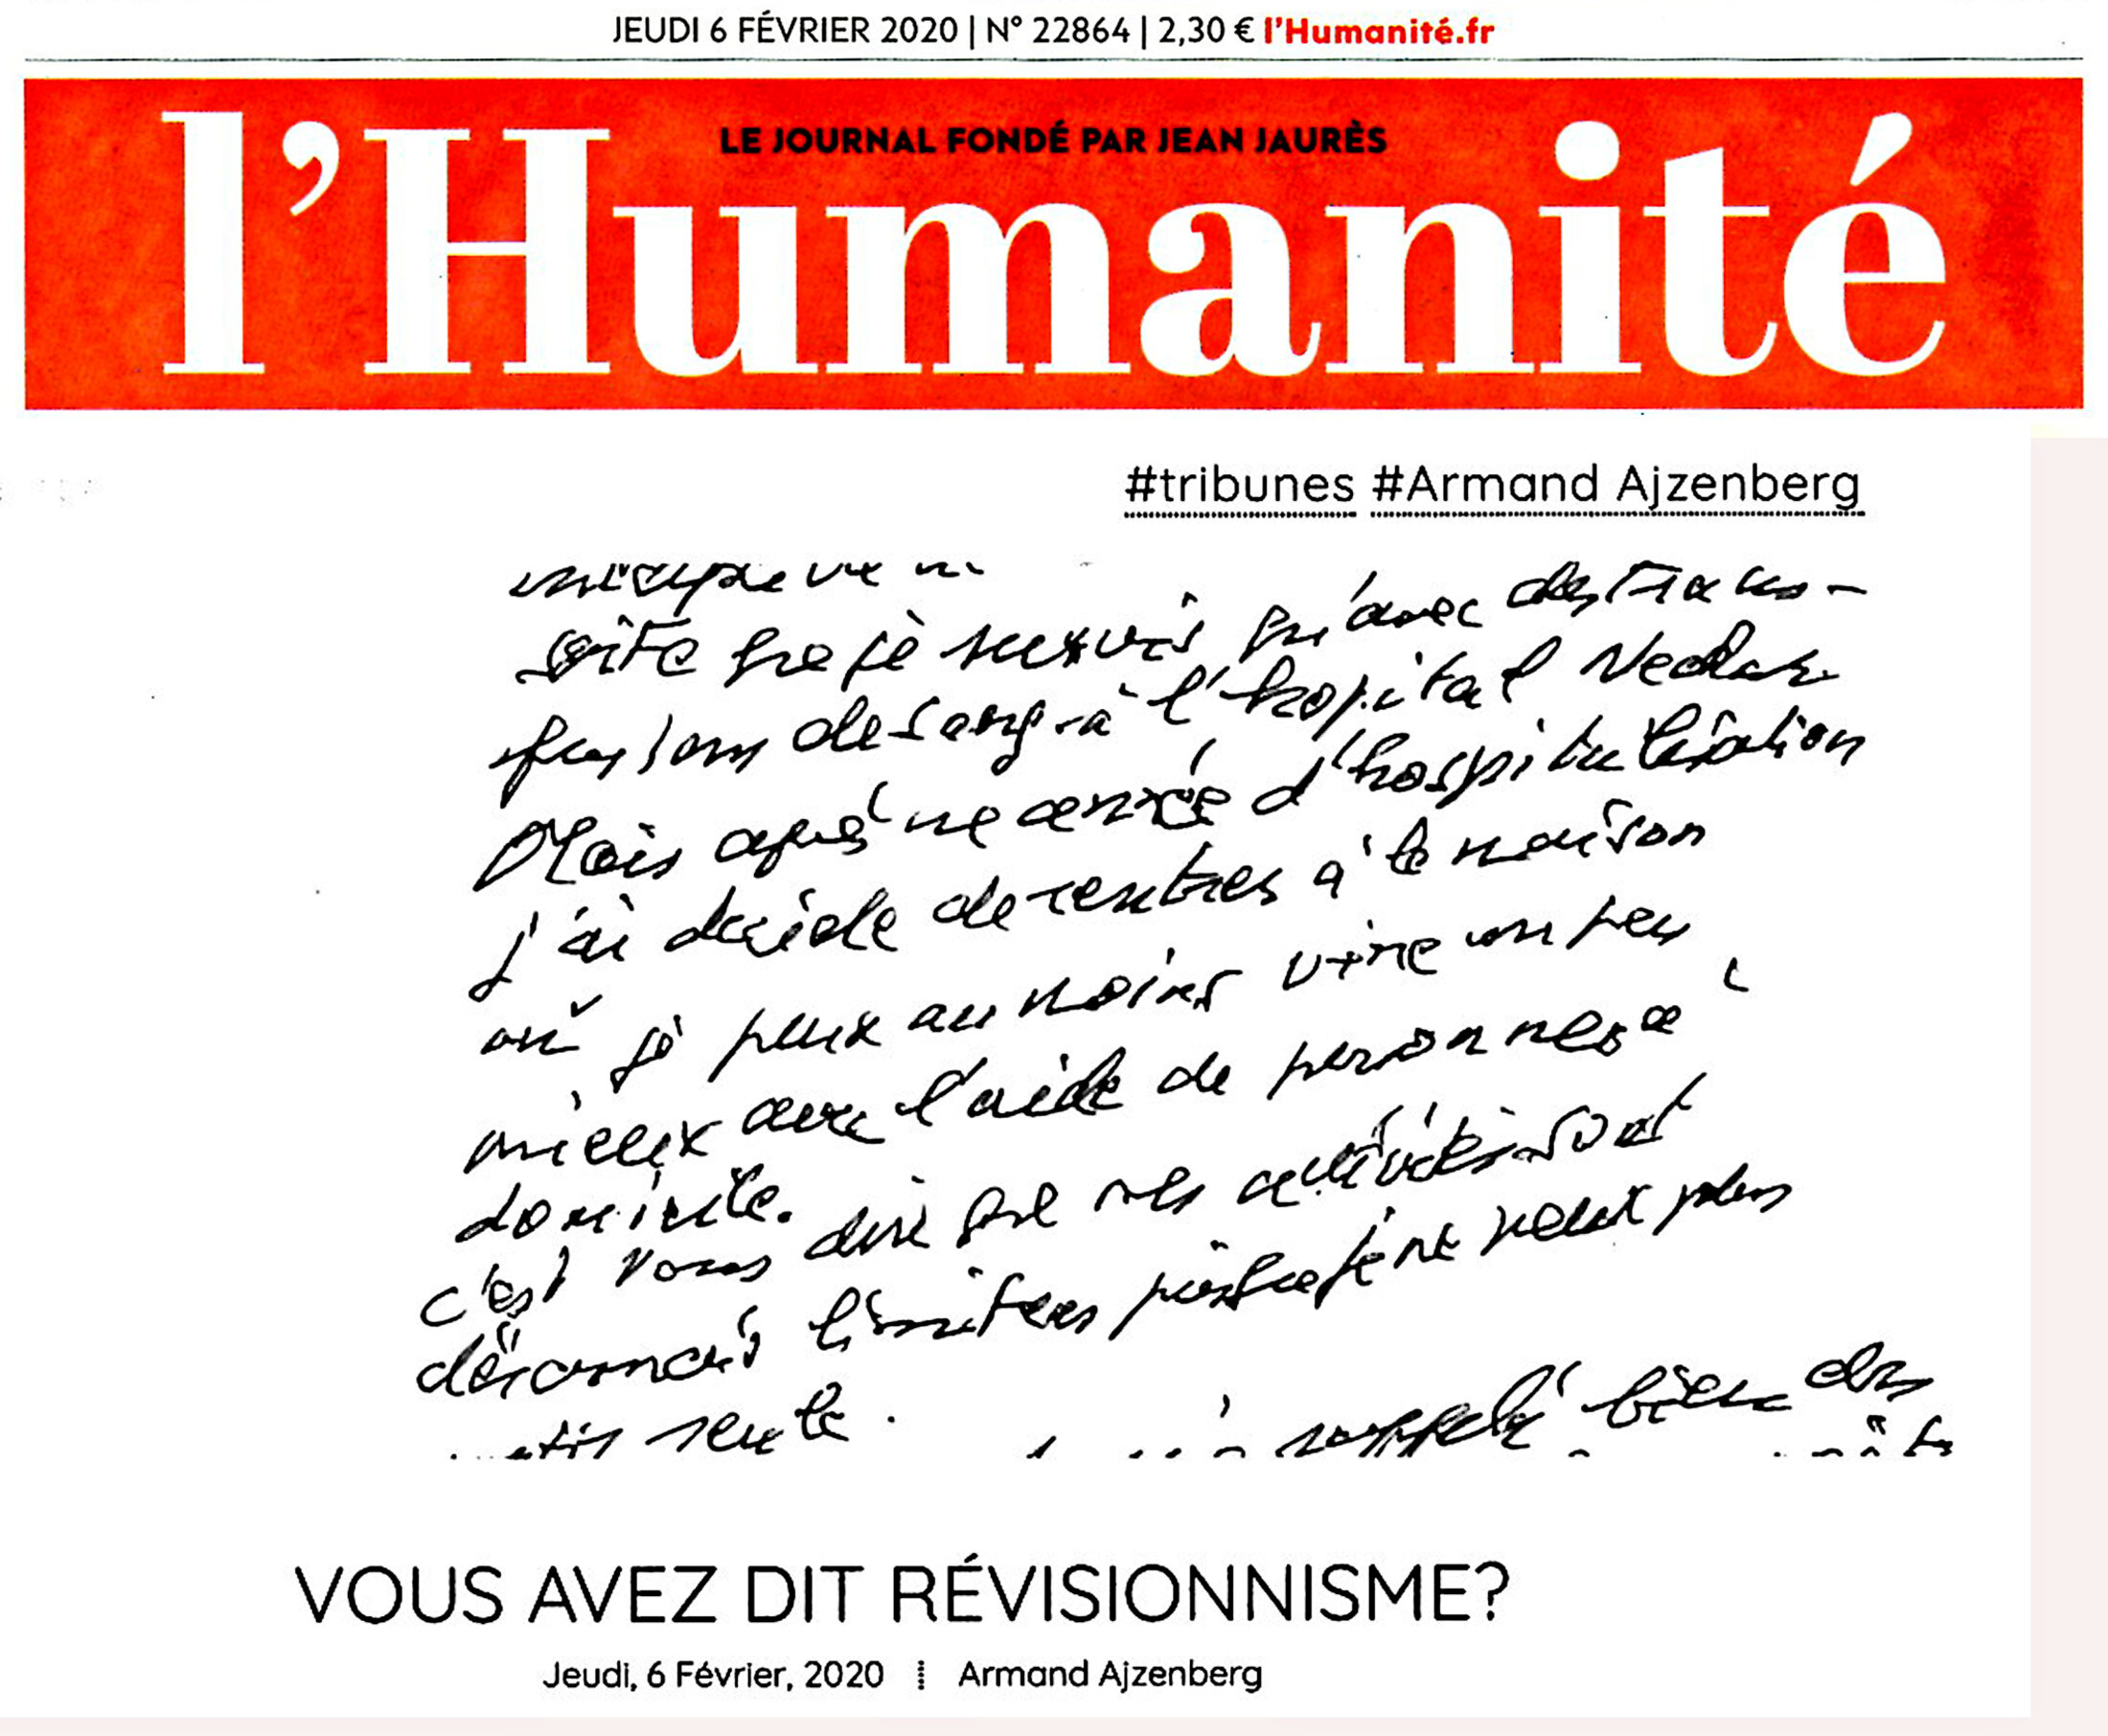 JEUDI 6 FÉVRIER 2020 | N° 22864 | 2,30 € l'Humanité.fr
LE JOURNAL FONDÉ PAR JEAN JAURÈS
l'Humanité
#tribunes #Armand Ajzenberg
vite que je survis qu'avec des trans-
fusions de sang à l'hopital
Mais après une année d'hospitalisation
j'ai décidé de rentrer à la maison
où je peux au moins vivre un peu
mieux avec l'aide de personnes à
domicile.
c'est vous dire que mes activités sont
désormais limitées puisque je ne peux plus
seule.
bien des
VOUS AVEZ DIT RÉVISIONNISME?
Jeudi, 6 Février, 2020 Armand Ajzenberg